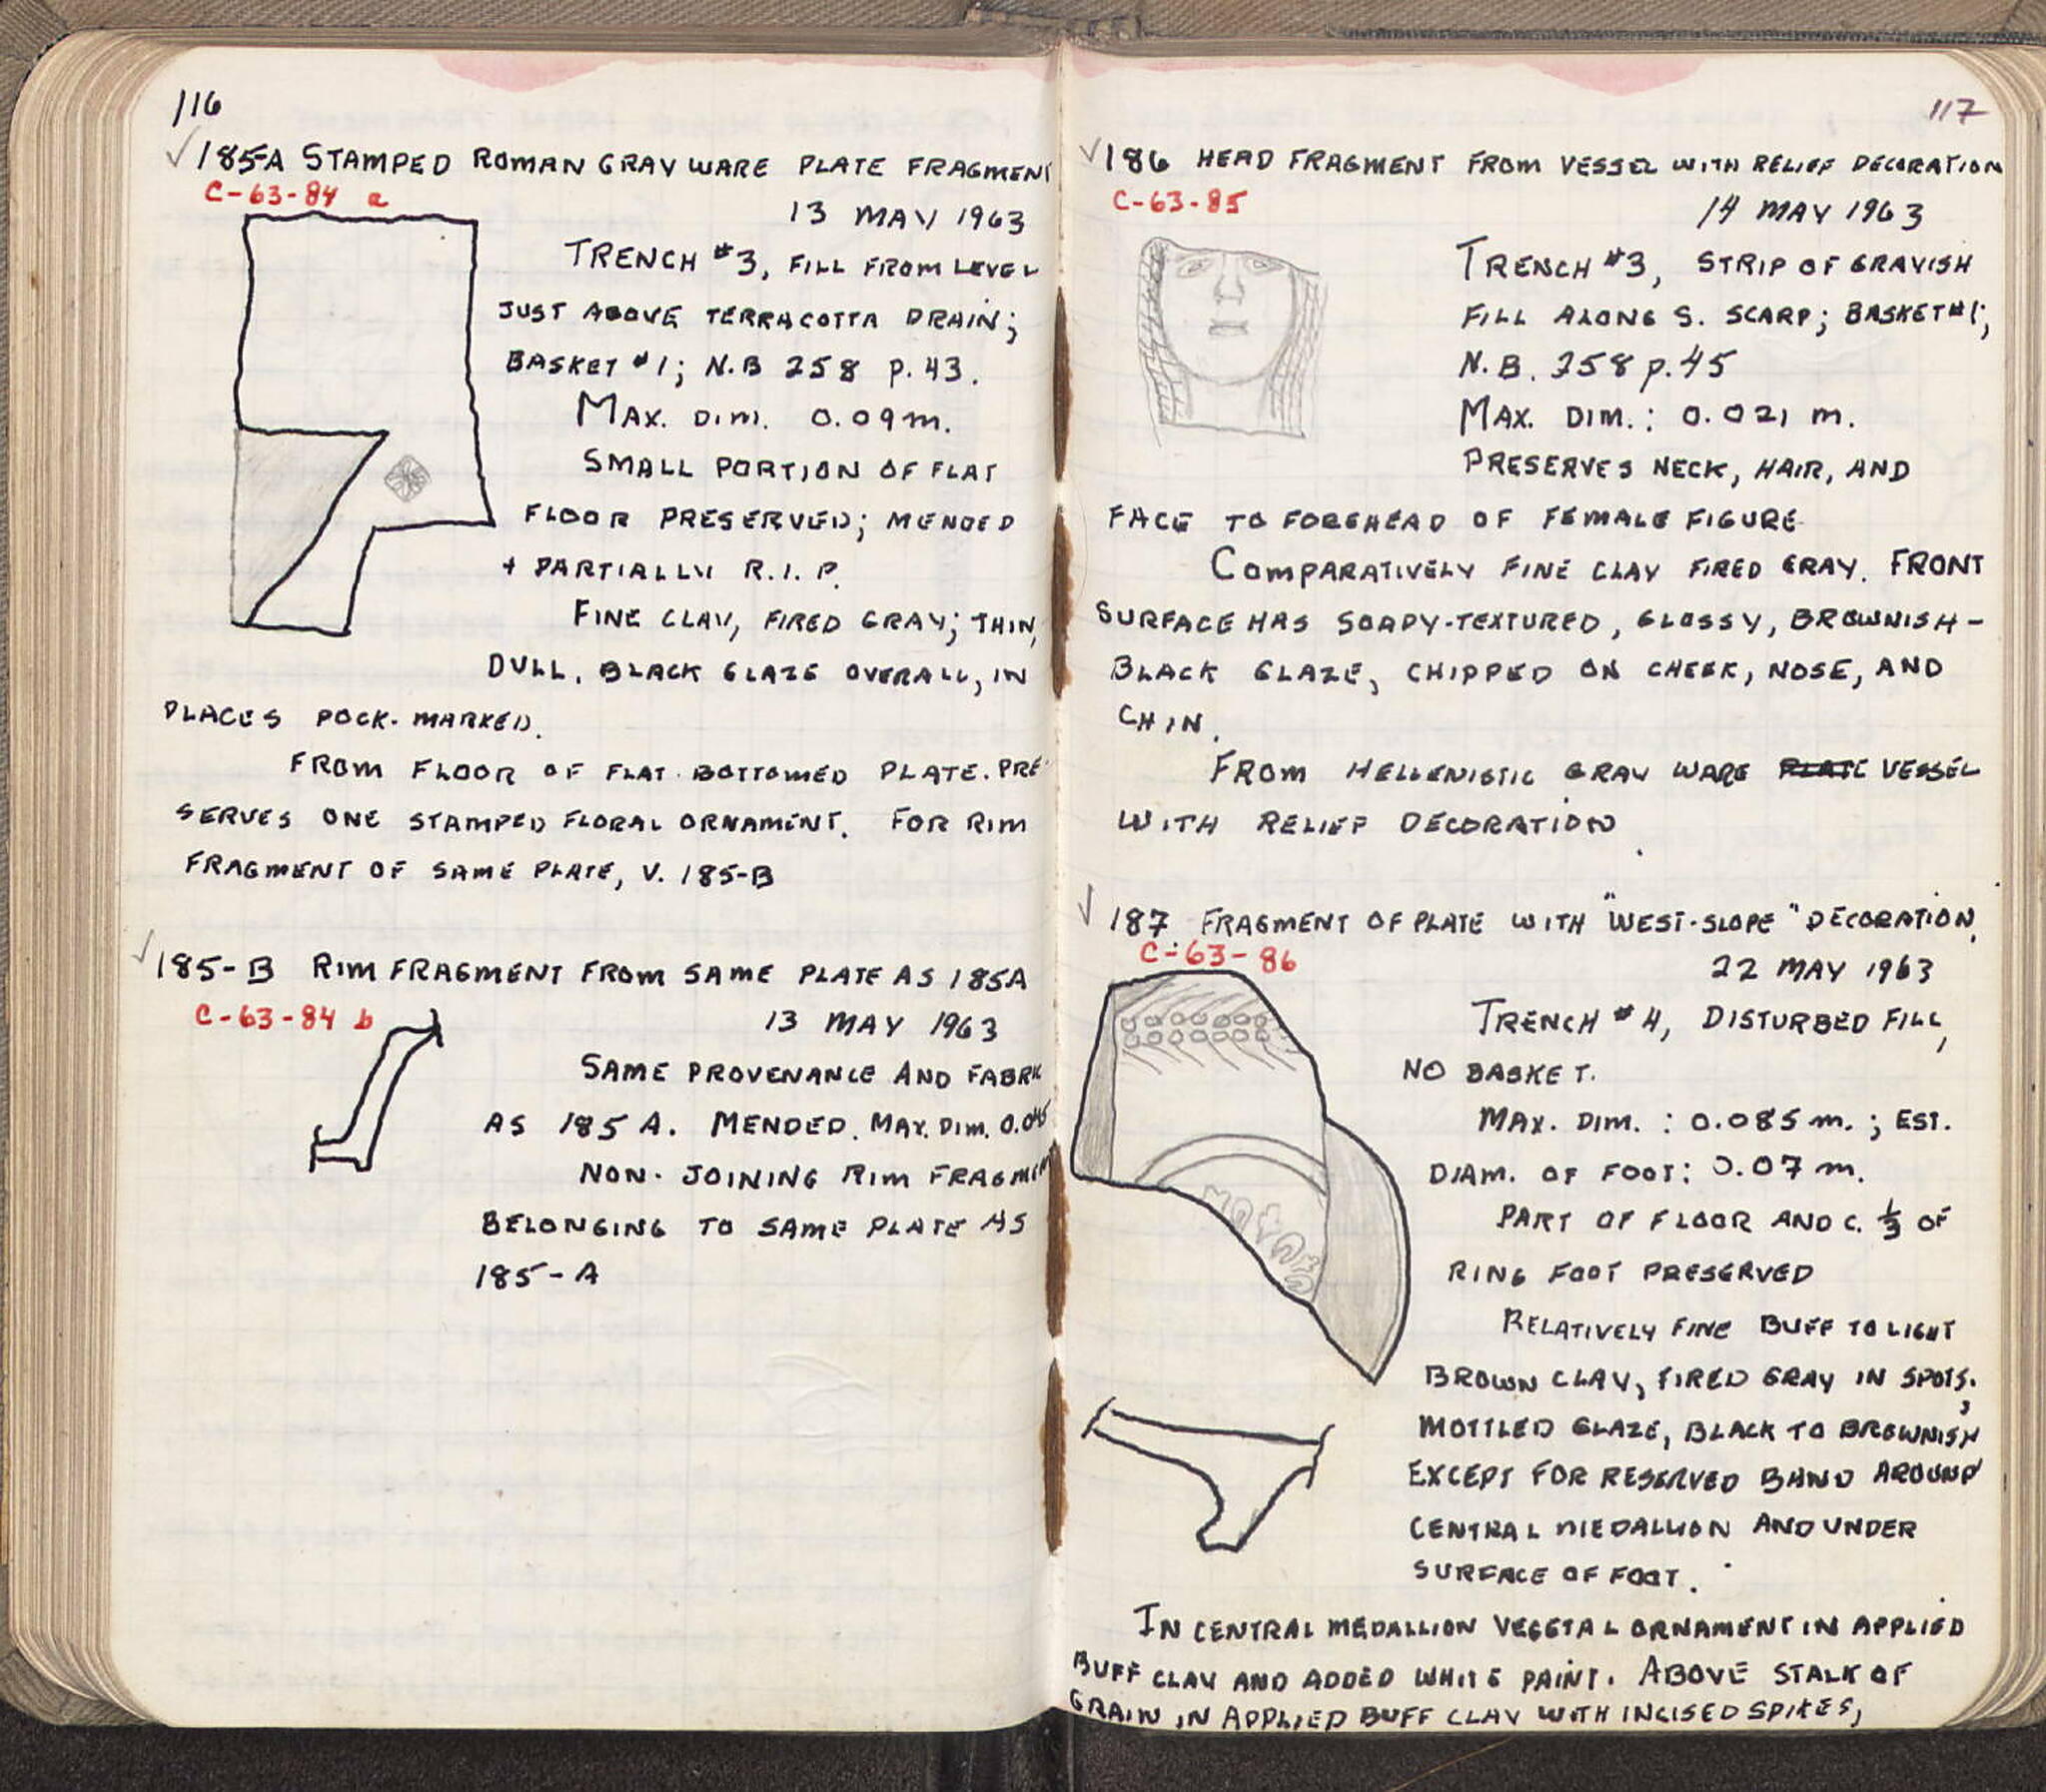 116
185-A STAMPED ROMAN GRAY WARE PLATE FRAGMENT
C-63-84 a
13 MAY 1963
TRENCH #3, FILL FROM LEVEL
JUST ABOVE TERRACOTTA DRAIN;
BASKET #1; N.B 258 P. 43.
MAX. DIM. 0.09 m.
SMALL PORTION OF FLAT
FLOOR PRESERVED; MENDED
+ PARTIALLY R.I.P.
FINE CLAY, FIRED GRAY; THIN,
DULL, BLACK GLAZE OVERALL, IN
PLACES POCK-MARKED.
FROM FLOOR OF FLAT-BOTTOMED PLATE. PRE-
SERVES ONE STAMPED FLORAL ORNAMENT. FOR RIM
FRAGMENT OF SAME PLATE, V. 185-B
185-B RIM FRAGMENT FROM SAME PLATE AS 185A
C-63-84 b
13 MAY 1963
SAME PROVENANCE AND FABRIC
AS 185 A. MENDED. MAX. DIM.
NON-JOINING RIM FRAGMENT
BELONGING TO SAME PLATE AS
185-A
117
186 HEAD FRAGMENT FROM VESSEL WITH RELIEF DECORATION
C-63-85
14 MAY 1963
TRENCH #3, STRIP OF GRAYISH
FILL ALONG S. SCARP; BASKET #1;
N.B. 258 p. 45
MAX. DIM.: 0.021 m.
PRESERVES NECK, HAIR, AND
FACE TO FOREHEAD OF FEMALE FIGURE
COMPARATIVELY FINE CLAY FIRED GRAY. FRONT
SURFACE HAS SOAPY-TEXTURED, GLOSSY, BROWNISH-
BLACK GLAZE, CHIPPED ON CHEEK, NOSE, AND
CHIN.
FROM HELLENISTIC GRAY WARE PLATE VESSEL
WITH RELIEF DECORATION.
187 FRAGMENT OF PLATE WITH "WEST-SLOPE" DECORATION.
C-63-86
22 MAY 1963
TRENCH #4, DISTURBED FILL,
NO BASKET.
MAX. DIM. : 0.085 m. ; EST.
DIAM. OF FOOT: 0.07 m.
PART OF FLOOR AND C. 1/3 OF
RING FOOT PRESERVED
RELATIVELY FINE BUFF TO LIGHT
BROWN CLAY, FIRED GRAY IN SPOTS;
MOTTLED GLAZE, BLACK TO BROWNISH
EXCEPT FOR RESERVED BAND AROUND
CENTRAL MEDALLION AND UNDER
SURFACE OF FOOT.
IN CENTRAL MEDALLION VEGETAL ORNAMENT IN APPLIED
BUFF CLAY AND ADDED WHITE PAINT. ABOVE STALK OF
GRAIN IN APPLIED BUFF CLAY WITH INCISED SPIKES,